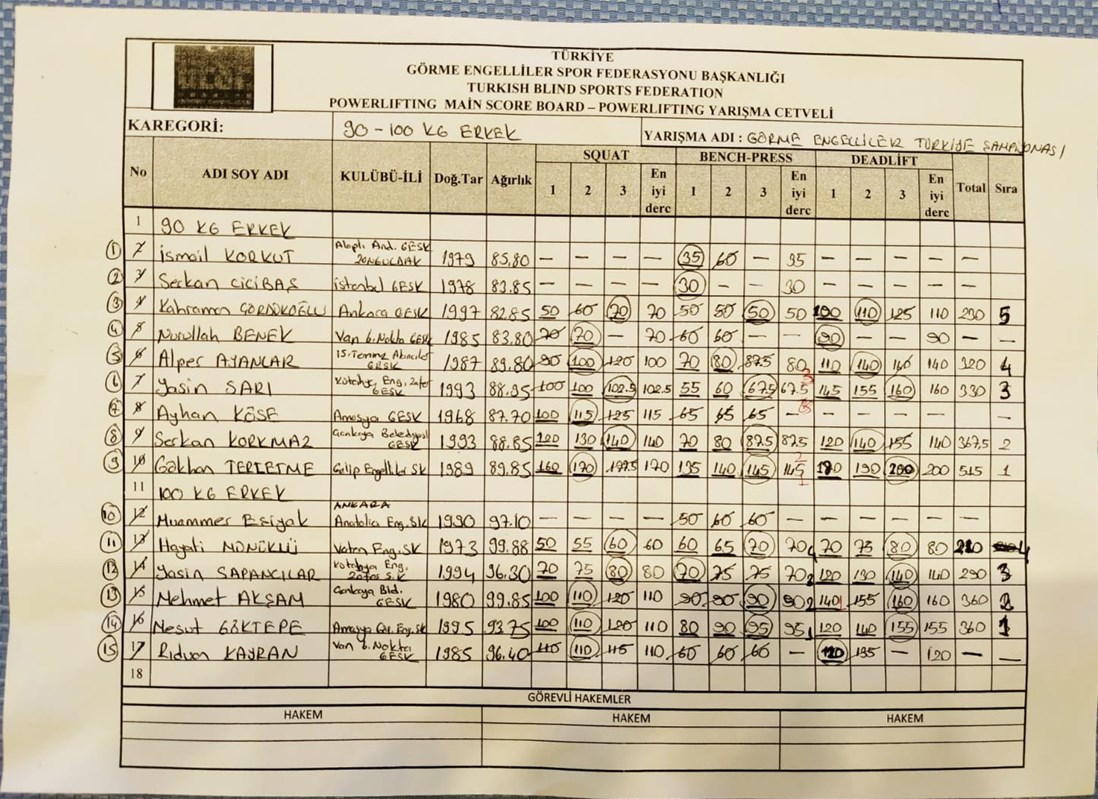 TÜRKİYE
GÖRME ENGELLİLER SPOR FEDERASYONU BAŞKANLIĞI
TURKISH BLIND SPORTS FEDERATION
POWERLIFTING MAIN SCORE BOARD – POWERLIFTING YARIŞMA CETVELİ
KAREGORİ: 90 - 100 KG ERKEK YARIŞMA ADI : GÖRME ENGELLİLER TÜRKİYE ŞAMPİYONASI
SQUAT BENCH-PRESS DEADLIFT
No ADI SOY ADI KULÜBÜ-İLİ Doğ.Tar Ağırlık 1 2 3 En iyi derc 1 2 3 En iyi derc 1 2 3 En iyi derc Total Sıra
1 90 KG ERKEK
1 2 İsmail KORKUT Alaplı And. GESK ZONGULDAK 1979 85,80 — — — — 35 60 — 35 — — — — — —
2 3 Serkan CİCİBAŞ İstanbul GESK 1978 83.85 — — — — 30 — — 30 — — — — — —
3 4 Kahraman Ankara GESK 1997 82.85 50 60 70 70 50 50 50 50 100 110 125 110 230 5
4 5 Nurullah BENEK Van 6. Nokta GESK 1985 83.80 70 70 — 70 60 60 — — 90 — — 90 — —
5 6 Alper AYANLAR 15. Temmuz GESK 1987 89.80 90 100 120 100 70 80 87.5 80 110 140 140 320 4
6 7 Yasin SARI Kütahya Eng. Zafer GESK 1993 88.95 100 100 102.5 102.5 55 60 67.5 67.5 145 155 160 160 330 3
7 8 Ayhan KÖSE Amasya GESK 1968 87.70 100 115 125 115 65 65 65 — — — — — — —
8 9 Serkan KORKMAZ Çankaya Belediyesi GESK 1993 88.85 120 130 140 140 70 80 87.5 87.5 120 140 155 140 367,5 2
9 10 Gökhan TERLETME Engelliler SK 1989 89.85 160 170 177.5 170 135 140 145 145 190 200 200 515 1
11 100 KG ERKEK
10 12 Muammer ANKARA Anatolia Eng. SK 1990 97.10 — — — — 50 60 60 — — — — — — —
11 13 Hayati Vatan Eng. SK 1973 99.88 50 55 60 60 60 65 70 70 70 75 80 80 210 4
12 14 Yasin SAPANCILAR Kütahya Eng. Zafer S.K 1994 96.30 70 75 80 80 70 75 75 70 120 130 140 140 290 3
13 15 Mehmet AKŞAM Çankaya Bld. GESK 1980 99.85 100 110 120 110 90 90 90 90 140 155 160 160 360 2
14 16 Mesut GÖKTEPE Amasya Gör. Eng. SK 1995 93.75 100 110 120 110 80 90 95 95 120 140 155 155 360 1
15 17 Rıdvan KAYRAN Van 6. Nokta GESK 1985 96.40 110 110 115 110 60 60 60 — 120 135 — 120 — —
18
GÖREVLİ HAKEMLER
HAKEM HAKEM HAKEM